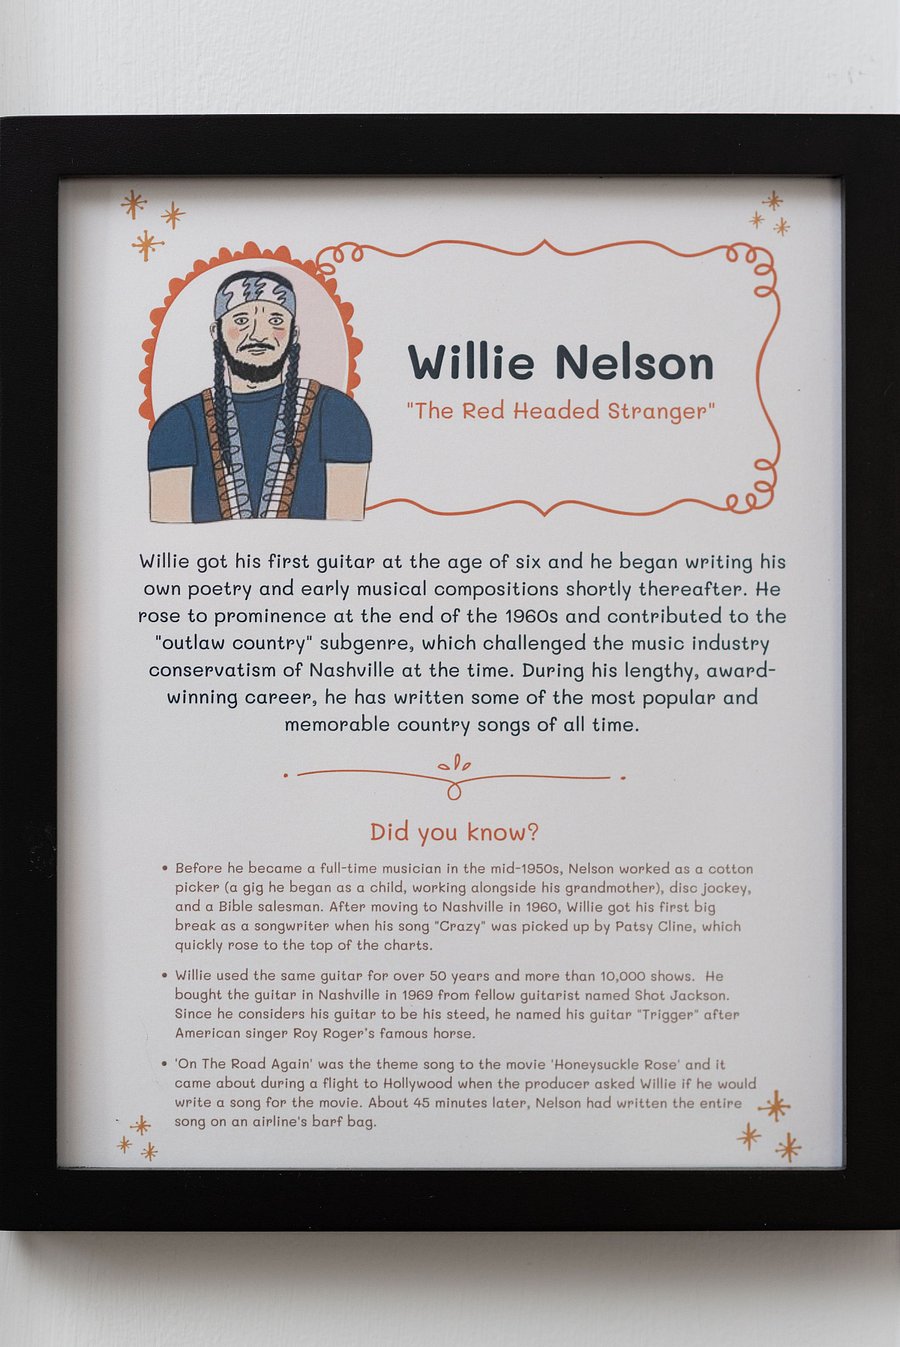 Willie Nelson
"The Red Headed Stranger"
Willie got his first guitar at the age of six and he began writing his
own poetry and early musical compositions shortly thereafter. He
rose to prominence at the end of the 1960s and contributed to the
"outlaw country" subgenre, which challenged the music industry
conservatism of Nashville at the time. During his lengthy, award-
winning career, he has written some of the most popular and
memorable country songs of all time.
Did you know?
• Before he became a full-time musician in the mid-1950s, Nelson worked as a cotton
picker (a gig he began as a child, working alongside his grandmother), disc jockey,
and a Bible salesman. After moving to Nashville in 1960, Willie got his first big
break as a songwriter when his song "Crazy" was picked up by Patsy Cline, which
quickly rose to the top of the charts.
• Willie used the same guitar for over 50 years and more than 10,000 shows. He
bought the guitar in Nashville in 1969 from fellow guitarist named Shot Jackson.
Since he considers his guitar to be his steed, he named his guitar "Trigger" after
American singer Roy Roger's famous horse.
• 'On The Road Again' was the theme song to the movie 'Honeysuckle Rose' and it
came about during a flight to Hollywood when the producer asked Willie if he would
write a song for the movie. About 45 minutes later, Nelson had written the entire
song on an airline's barf bag.